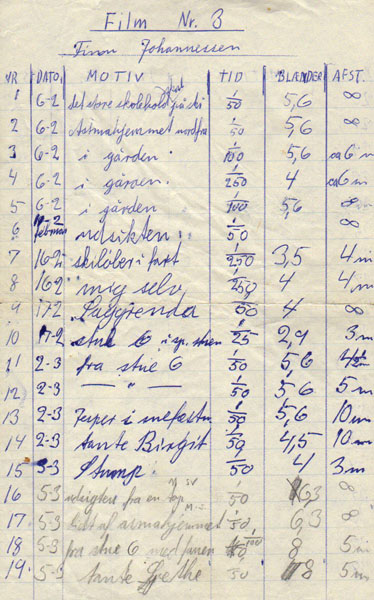 Film Nr. 3
Finn Johannessen
NR DATO MOTIV TID BLÆNDER AFST.
1 6-2 det store skolehold på ski 1/50 5,6 ∞
2 6-2 Astmahjemmet nordfra 1/50 5,6 ∞
3 6-2 i gården 1/100 5,6 ca 6 m
4 6-2 i gården 1/250 4 ca 6 m
5 6-2 i gården 1/100 5,6 ∞
6 februar udsikten 1/50 ∞
7 16-2 skiløber i fart 1/250 3,5 4 m
8 16-2 mig selv 1/250 4 4 m
9 17-2 1/50 4 ∞
10 17-2 stue 6 i sp. stuen 1/25 2,9 3 m
11 2-3 fra stue 6 1/50 5,6
12 2-3 — " — 1/50 5,6 5 m
13 2-3 1/50 5,6 10 m
14 2-3 tante Birgit 1/50 4,5 10 m
15 3-3 Stump 1/50 4 3 m
16 5-3 fra en top SV 1/50 6,3 ∞
17 5-3 astmahjemmet 1/50 6,3 ∞
18 5-3 fra stue 6 med 1/100 8 5 m
19 5-3 tante Grethe 1/50 8 5 m